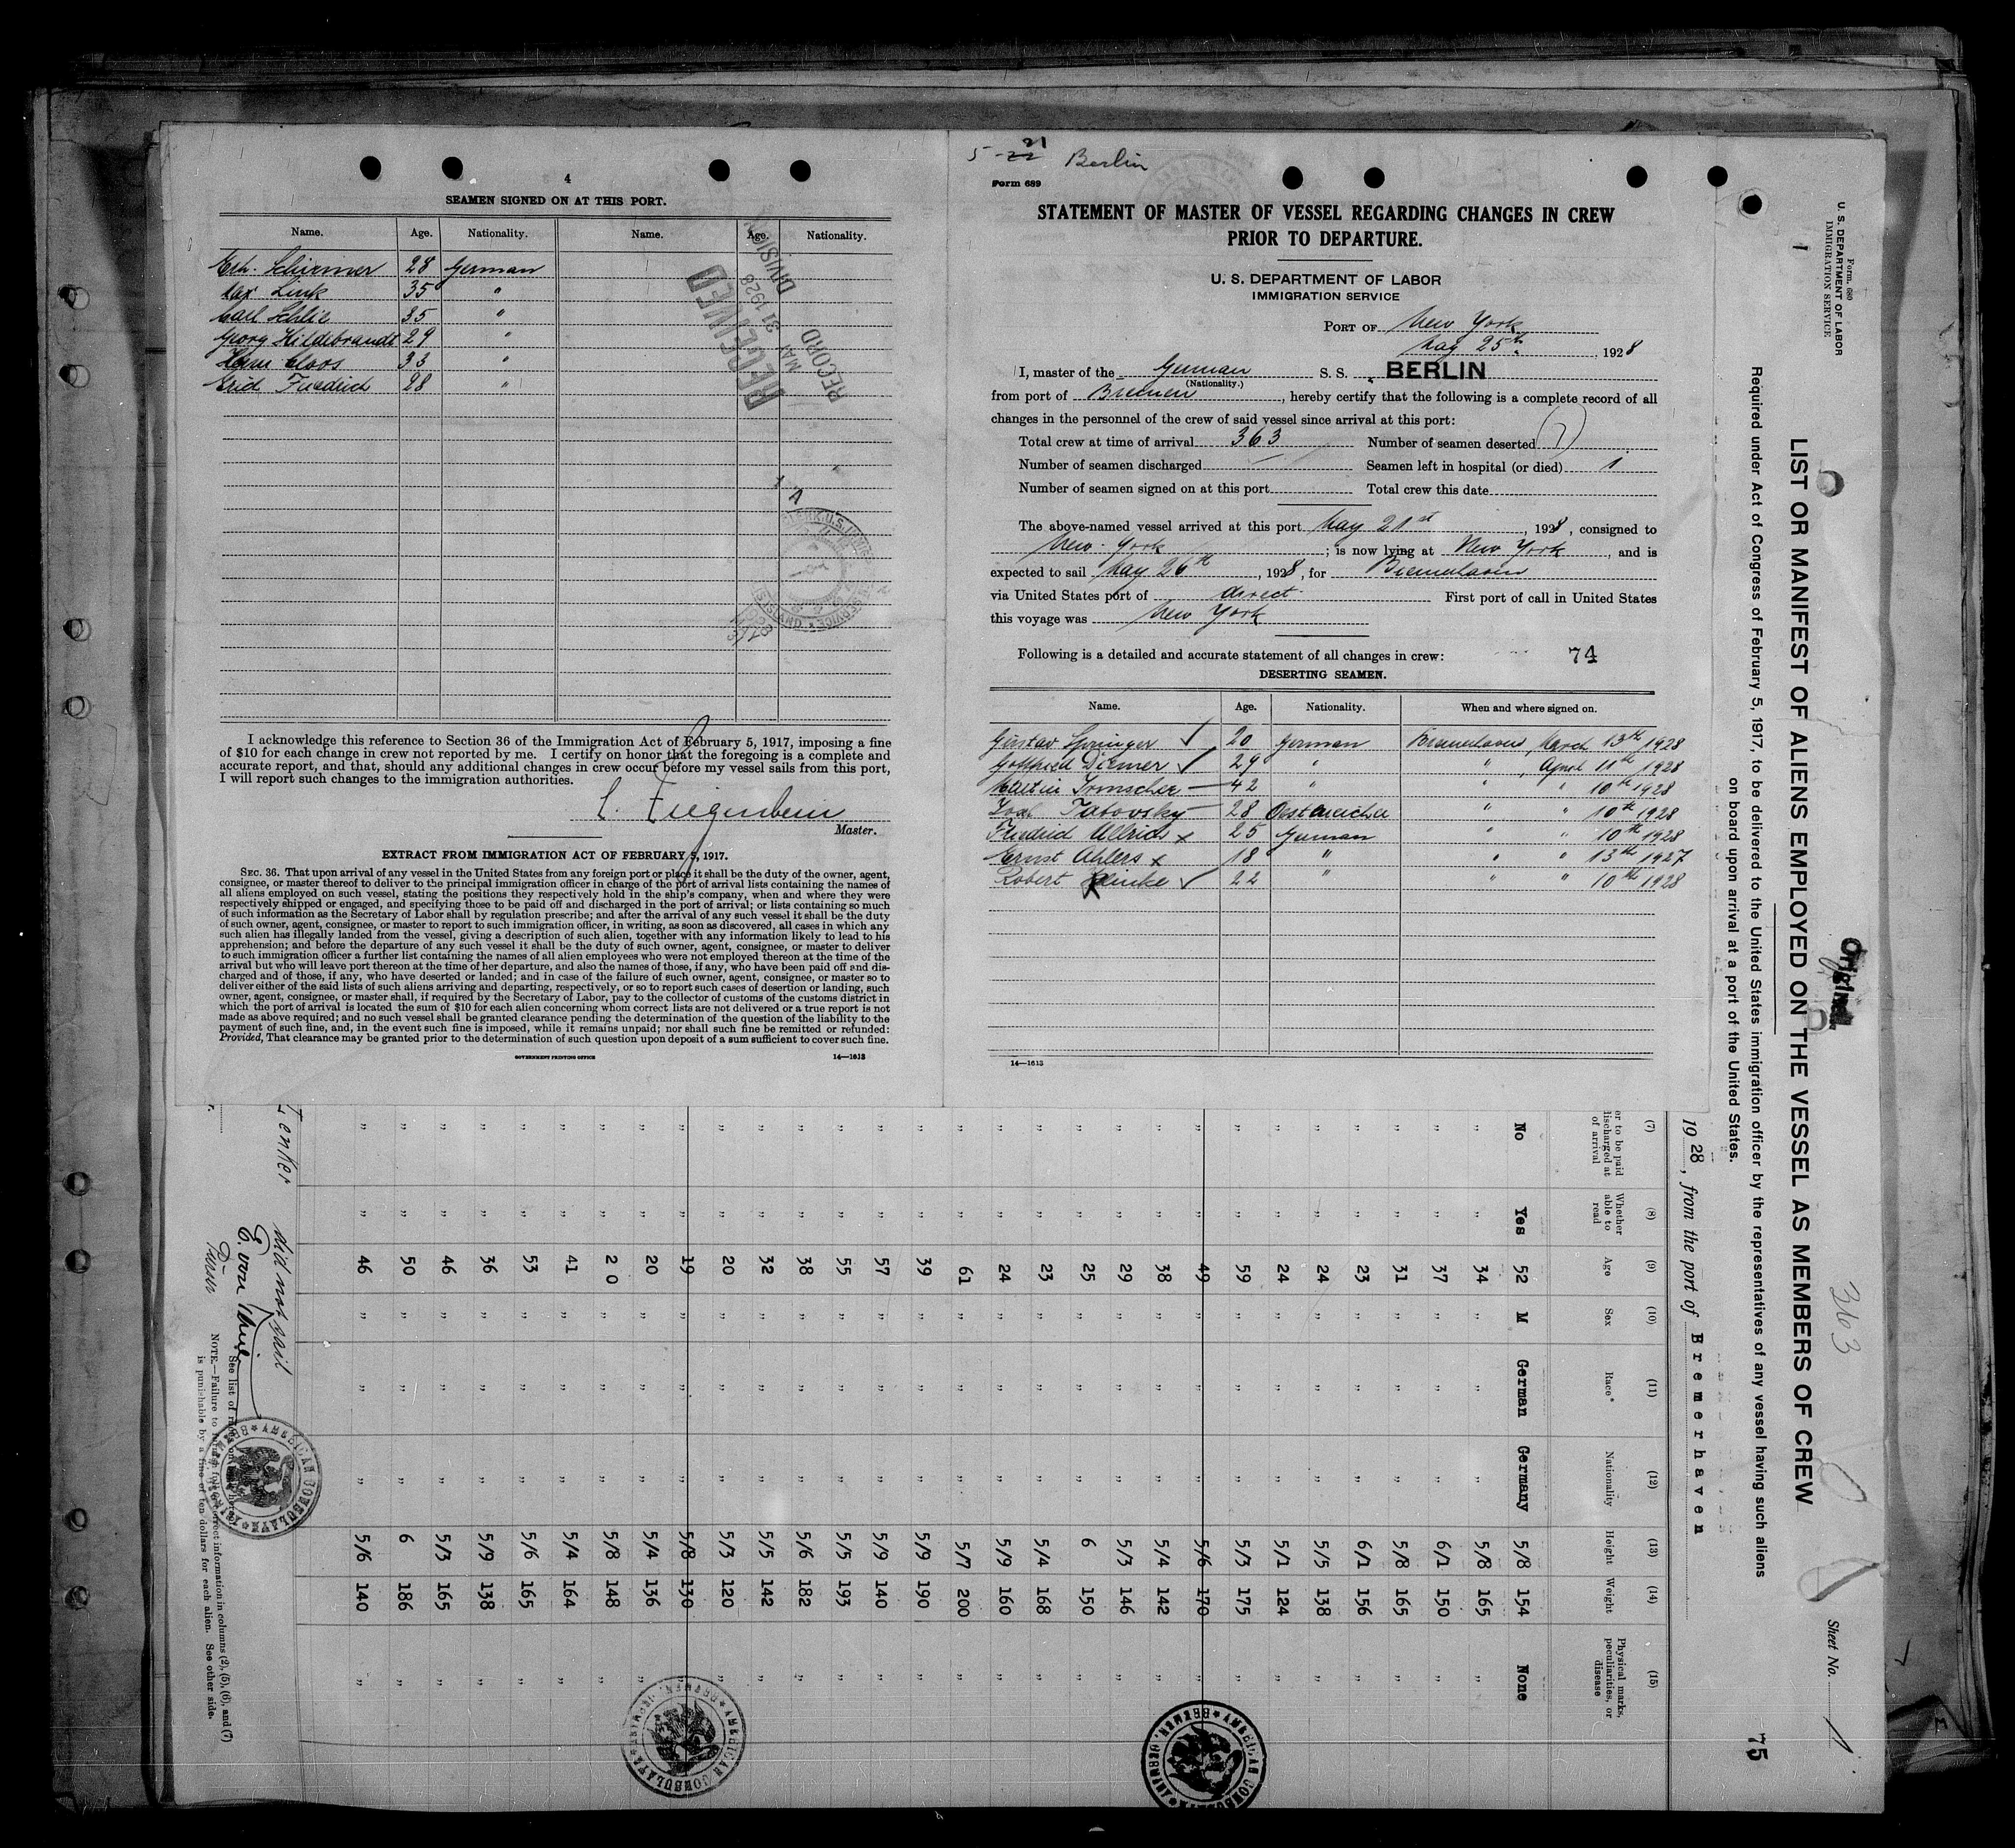 4
SEAMEN SIGNED ON AT THIS PORT.
Name. Age. Nationality. Name. Age. Nationality.
Erh. Schirmer 28 German
Max Link 35 "
Carl Schlie 35 "
Georg Hildebrandt 29 "
Hans Cloos 33 "
Erich Friedrich 28 "
RECEIVED
MAY 31 1928
RECORD DIVISION
I acknowledge this reference to Section 36 of the Immigration Act of February 5, 1917, imposing a fine
of $10 for each change in crew not reported by me. I certify on honor that the foregoing is a complete and
accurate report, and that, should any additional changes in crew occur before my vessel sails from this port,
I will report such changes to the immigration authorities.
Master.
EXTRACT FROM IMMIGRATION ACT OF FEBRUARY 5, 1917.
SEC. 36. That upon arrival of any vessel in the United States from any foreign port or place it shall be the duty of the owner, agent,
consignee, or master thereof to deliver to the principal immigration officer in charge of the port of arrival lists containing the names of
all aliens employed on such vessel, stating the positions they respectively hold in the ship's company, when and where they were
respectively shipped or engaged, and specifying those to be paid off and discharged in the port of arrival; or lists containing so much
of such information as the Secretary of Labor shall by regulation prescribe; and after the arrival of any such vessel it shall be the duty
of such owner, agent, consignee, or master to report to such immigration officer, in writing, as soon as discovered, all cases in which any
such alien has illegally landed from the vessel, giving a description of such alien, together with any information likely to lead to his
apprehension; and before the departure of any such vessel it shall be the duty of such owner, agent, consignee, or master to deliver
to such immigration officer a further list containing the names of all alien employees who were not employed thereon at the time of the
arrival but who will leave port thereon at the time of her departure, and also the names of those, if any, who have been paid off and dis-
charged and of those, if any, who have deserted or landed; and in case of the failure of such owner, agent, consignee, or master so to
deliver either of the said lists of such aliens arriving and departing, respectively, or so to report such cases of desertion or landing, such
owner, agent, consignee, or master shall, if required by the Secretary of Labor, pay to the collector of customs of the customs district in
which the port of arrival is located the sum of $10 for each alien concerning whom correct lists are not delivered or a true report is not
made as above required; and no such vessel shall be granted clearance pending the determination of the question of the liability to the
payment of such fine, and, in the event such fine is imposed, while it remains unpaid; nor shall such fine be remitted or refunded:
Provided, That clearance may be granted prior to the determination of such question upon deposit of a sum sufficient to cover such fine.
GOVERNMENT PRINTING OFFICE 14—1613
5-22 21 Berlin
Form 689
STATEMENT OF MASTER OF VESSEL REGARDING CHANGES IN CREW
PRIOR TO DEPARTURE.
U. S. DEPARTMENT OF LABOR
IMMIGRATION SERVICE
PORT OF New York
May 25th, 1928
I, master of the German S. S. BERLIN
(Nationality.)
from port of Bremen, hereby certify that the following is a complete record of all
changes in the personnel of the crew of said vessel since arrival at this port:
Total crew at time of arrival 363 Number of seamen deserted (7)
Number of seamen discharged — Seamen left in hospital (or died) 1
Number of seamen signed on at this port Total crew this date
The above-named vessel arrived at this port May 21st, 1928, consigned to
New-York; is now lying at New York, and is
expected to sail May 26th, 1928, for Bremerhaven
via United States port of direct First port of call in United States
this voyage was New York
Following is a detailed and accurate statement of all changes in crew: 74
DESERTING SEAMEN.
Name. Age. Nationality. When and where signed on.
Gustav Springer ✓ 20 German Bremerhaven March 13th 1928
Gottfried Diemer ✓ 29 " " April 11th 1928
Martin Irmscher — 42 " " " 10th 1928
Tabovsky — 28 Oestereicher " " 10th 1928
Friedrich x 25 German " " 10th 1928
Ernst Ahlers x 18 " " " 13th 1927
Robert ✓ 22 " " " 10th 1928
14—1613
Form 680
U. S. DEPARTMENT OF LABOR
IMMIGRATION SERVICE
1
LIST OR MANIFEST OF ALIENS EMPLOYED ON THE VESSEL AS MEMBERS OF CREW
Required under Act of Congress of February 5, 1917, to be delivered to the United States immigration officer by the representatives of any vessel having such aliens
on board upon arrival at a port of the United States.
Original
363
Sheet No. 1
75
1928, from the port of Bremerhaven
(7) (8) (9) (10) (11) (12) (13) (14) (15)
er to be paid discharged at of arrival Whether able to read Age Sex Race* Nationality Height Weight Physical marks, peculiarities, or disease
No Yes 52 M German Germany 5/8 154 None
" " 34 " " " 5/8 165 "
" " 37 " " " 6/1 150 "
" " 31 " " " 5/8 165 "
" " 23 " " " 6/1 156 "
" " 24 " " " 5/5 138 "
" " 24 " " " 5/1 124 "
" " 59 " " " 5/3 175 "
" " 49 " " " 5/6 170 "
" " 38 " " " 5/4 142 "
" " 29 " " " 5/3 146 "
" " 25 " " " 6 150 "
" " 23 " " " 5/4 168 "
" " 24 " " " 5/9 160 "
" " 61 " " " 5/7 200 "
" " 39 " " " 5/9 190 "
" " 57 " " " 5/9 140 "
" " 55 " " " 5/5 193 "
" " 38 " " " 5/6 182 "
" " 32 " " " 5/5 142 "
" " 20 " " " 5/3 120 "
" " 19 " " " 5/8 130 "
" " 20 " " " 5/4 136 "
" " 20 " " " 5/8 148 "
" " 41 " " " 5/4 164 "
" " 53 " " " 5/6 165 "
" " 36 " " " 5/9 138 "
" " 46 " " " 5/3 165 "
" " 50 " " " 6 186 "
" " 46 " " " 5/6 140 "
did not sail
Purser
See list of
NOTE.—Failure to correct information in columns (2), (5), (6), and (7)
is punishable by a fine of ten dollars for each alien. See other side.
AMERICAN CONSULATE BREMEN, GERMANY
AMERICAN CONSULATE BREMEN, GERMANY
AMERICAN CONSULATE BREMEN, GERMANY